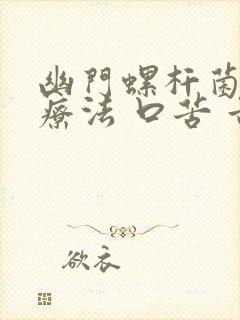 幽門螺杆菌
療法 口苦
欲衣